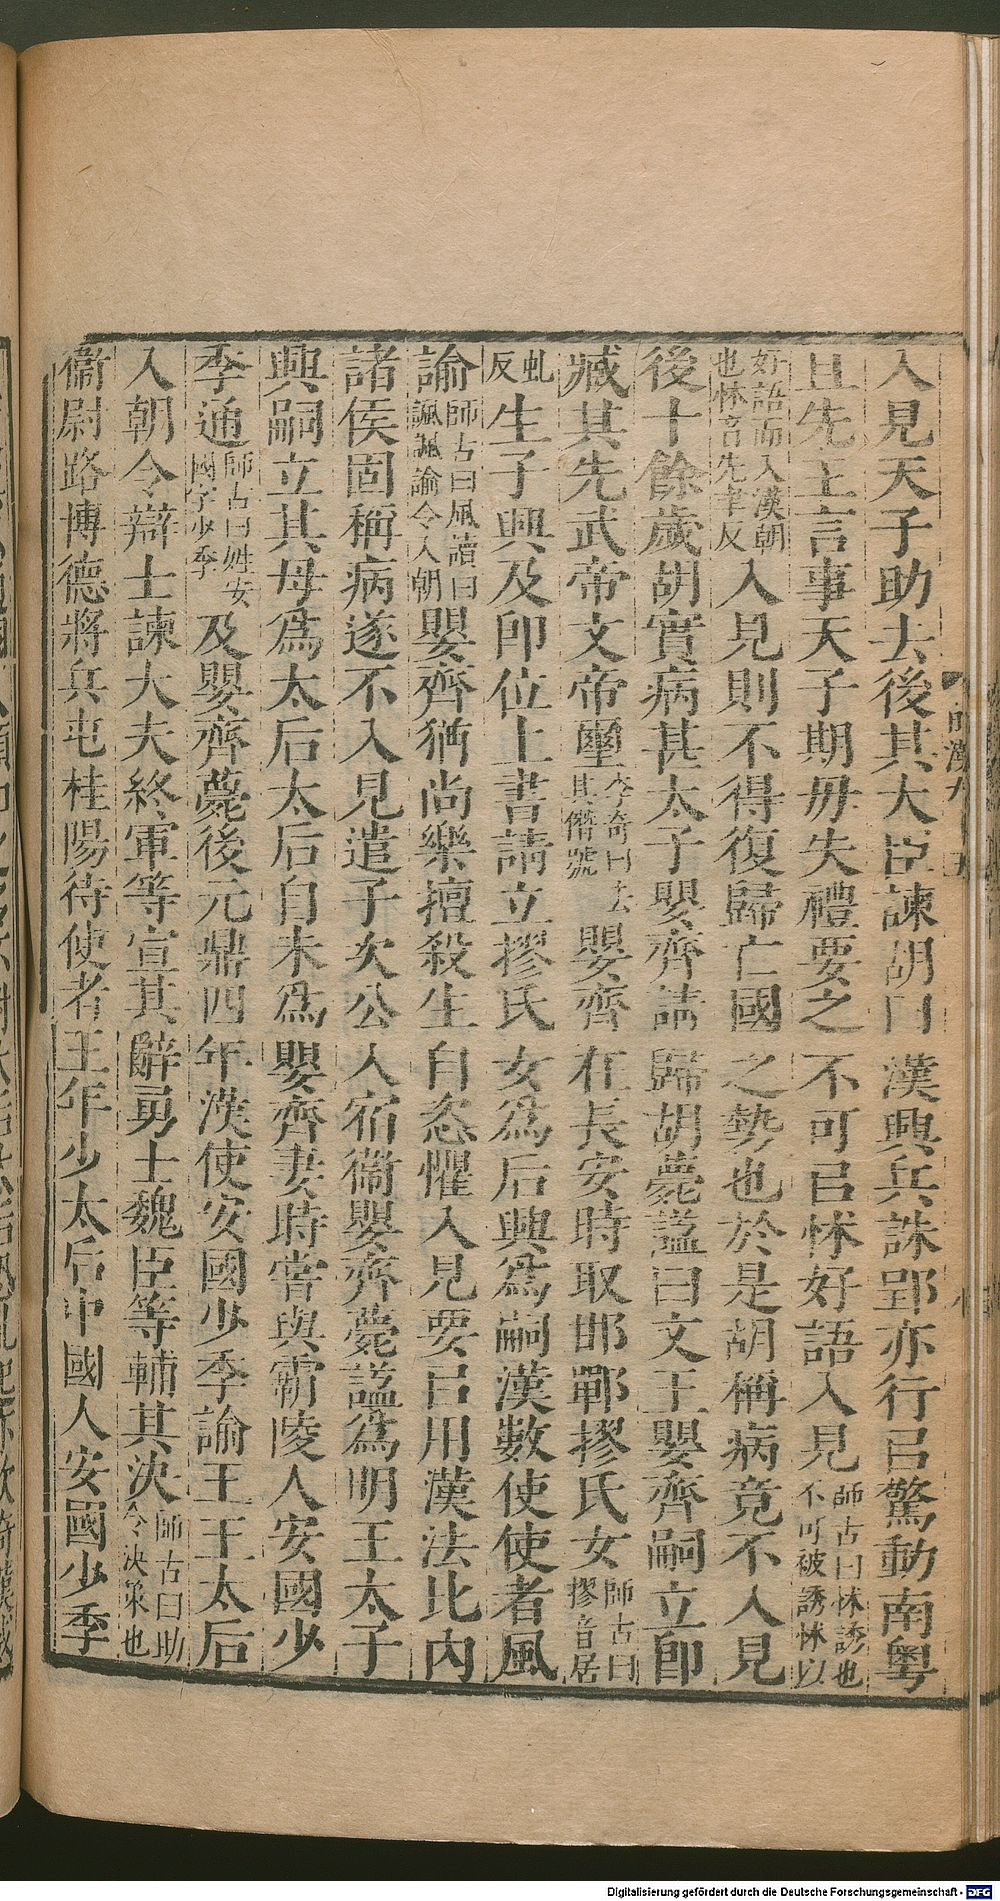 入見天子助去後其大臣諫胡曰漢興兵誅郢亦行㠯驚動南粵
且先王言事天子期毋失禮要之不可㠯怵好語入見師古曰怵誘也不可被誘怵以
好語而入漢朝也怵音先聿反入見則不得復歸亡國之勢也於是胡稱病竟不入見
後十餘歲胡實病甚太子嬰齊請歸胡薨諡曰文王嬰齊嗣立卽
臧其先武帝文帝璽李奇曰去其僭號嬰齊在長安時取邯鄲摎氏女師古曰摎音居
虬反生子興及卽位上書請立摎氏女為后興為嗣漢數使使者風
諭師古曰風讀曰諷諷諭令入朝嬰齊猶尚樂擅殺生自恣懼入見要㠯用漢法比內
諸侯固稱病遂不入見遣子次公入宿衞嬰齊薨諡為明王太子
興嗣立其母為太后太后自未為嬰齊妻時嘗與霸陵人安國少
季通師古曰姓安國字少季及嬰齊薨後元鼎四年漢使安國少季諭王王太后
入朝令辯士諫大夫終軍等宣其辭勇士魏臣等輔其決師古曰助令決策也
衞尉路博德將兵屯桂陽待使者王年少太后中國人安國少季
Digitalisierung gefördert durch die Deutsche Forschungsgemeinschaft - DFG